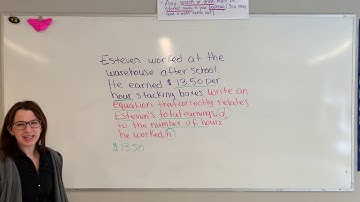 Any
Esteven worked at the
warehouse after school.
He earned $13.50 per
hour stacking boxes write an
equation that correctly relates
Esteven's total earnings, d,
to the number of hours
he worked, h
$13.50